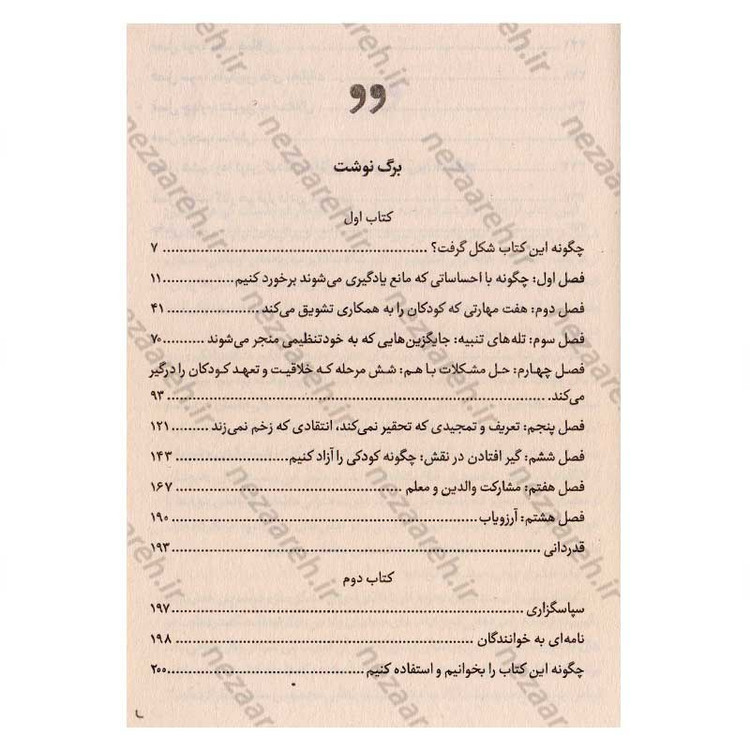 برگ نوشت
کتاب اول
چگونه این کتاب شکل گرفت؟ ........ ۷
فصل اول: چگونه با احساساتی که مانع یادگیری می‌شوند برخورد کنیم ........ ۱۱
فصل دوم: هفت مهارتی که کودکان را به همکاری تشویق می‌کند ........ ۴۱
فصل سوم: تله‌های تنبیه: جایگزین‌هایی که به خودتنظیمی منجر می‌شوند ........ ۷۰
فصل چهارم: حل مشکلات با هم: شش مرحله که خلاقیت و تعهد کودکان را درگیر
می‌کند. ........ ۹۳
فصل پنجم: تعریف و تمجیدی که تحقیر نمی‌کند، انتقادی که زخم نمی‌زند ........ ۱۲۱
فصل ششم: گیر افتادن در نقش: چگونه کودکی را آزاد کنیم ........ ۱۴۳
فصل هفتم: مشارکت والدین و معلم ........ ۱۶۷
فصل هشتم: آرزویاب ........ ۱۹۰
قدردانی ........ ۱۹۳
کتاب دوم
سپاسگزاری ........ ۱۹۷
نامه‌ای به خوانندگان ........ ۱۹۸
چگونه این کتاب را بخوانیم و استفاده کنیم ........ ۲۰۰
nezaareh.ir